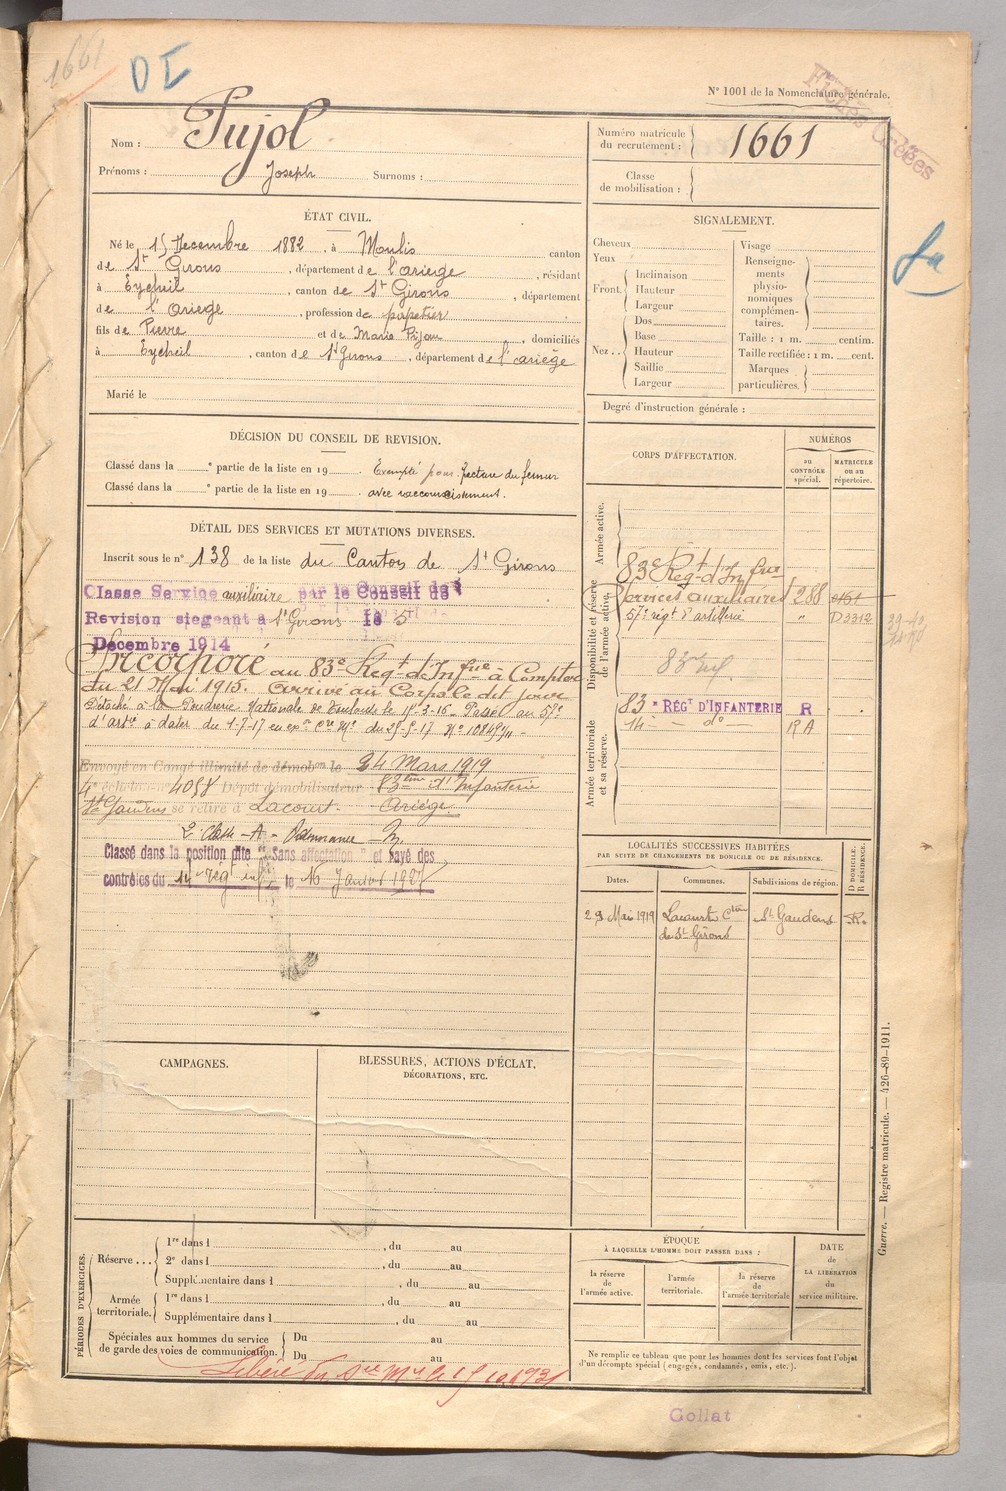 1661
DI
N° 1001 de la Nomenclature générale.
Fiches Créées
Nom : Pujol
Prénoms : Joseph Surnoms :
Numéro matricule du recrutement : 1661
Classe de mobilisation :
ÉTAT CIVIL.
Né le 15 Decembre 1882 , à Moulis canton
de St Girons , département de l'ariege , résidant
à Eycheil , canton de St Girons , département
de l'Ariege , profession de papetier
fils de Pierre et de Marie Pijou , domiciliés
à Eycheil , canton de St Girons , département de l'ariège
Marié le
SIGNALEMENT.
Cheveux
Yeux
Front. Inclinaison
Hauteur
Largeur
Nez . . Dos
Base
Hauteur
Saillie
Largeur
Visage
Renseignements physionomiques complémentaires.
Taille : 1 m. centim.
Taille rectifiée : 1 m. cent.
Marques particulières.
Degré d'instruction générale :
DÉCISION DU CONSEIL DE REVISION.
Classé dans la ° partie de la liste en 19 . Exempté pour fracture du femur
Classé dans la ° partie de la liste en 19 . avec raccourcissement.
DÉTAIL DES SERVICES ET MUTATIONS DIVERSES.
Inscrit sous le n° 138 de la liste du Canton de St Girons
Classe Service auxiliaire par le Conseil de
Revision siegeant à St Girons le 5
Décembre 1914
Incorporé au 83e Regt d'Infrie à Compter
du 21 Mai 1915. Arrivé au Corps le dit jour
Détaché à la Poudrerie Nationale de Toulouse le 18-2-16. Passé au 57e
d'artie à dater du 1-7-17
Envoyé en Congé illimité de démobon le 24 Mars 1919
4e n° 4058 Dépôt démobilisateur 83eme d'Infanterie
St Gaudens se retire à Lacourt. Ariège.
Classé dans la position dite "Sans affectation" et rayé des
contrôles du 14e reg inf le 16 Janvier 1927
CORPS D'AFFECTATION.
NUMÉROS
au CONTRÔLE spécial.
MATRICULE ou au répertoire.
Armée active.
Disponibilité et réserve de l'armée active.
83e Regt d'Infrie
Services auxiliaires 288
57e régt d'artillerie " D3312
83e Inf
Armée territoriale et sa réserve.
83e RÉGT D'INFANTERIE R
14 - do - RA
LOCALITÉS SUCCESSIVES HABITÉES
PAR SUITE DE CHANGEMENTS DE DOMICILE OU DE RÉSIDENCE.
Dates. Communes. Subdivisions de région. D DOMICILE. R RÉSIDENCE.
29 Mai 1919 Lacourt Cton de St Girons St Gaudens R.
CAMPAGNES.
BLESSURES, ACTIONS D'ÉCLAT,
DÉCORATIONS, ETC.
Guerre. — Registre matricule. — 426-89-1911.
PÉRIODES D'EXERCICES.
Réserve . . . 1re dans l , du au
2e dans l , du au
Supplémentaire dans l , du au
Armée territoriale. 1re dans l , du au
Supplémentaire dans l , du au
Spéciales aux hommes du service de garde des voies de communication. Du au
Du au
ÉPOQUE
À LAQUELLE L'HOMME DOIT PASSER DANS :
la réserve de l'armée active.
l'armée territoriale.
la réserve de l'armée territoriale
DATE de LA LIBÉRATION du service militaire.
Ne remplir ce tableau que pour les hommes dont les services font l'objet
d'un décompte spécial (engagés, condamnés, omis, etc.).
Libéré du Sce Mre le 15
Collat